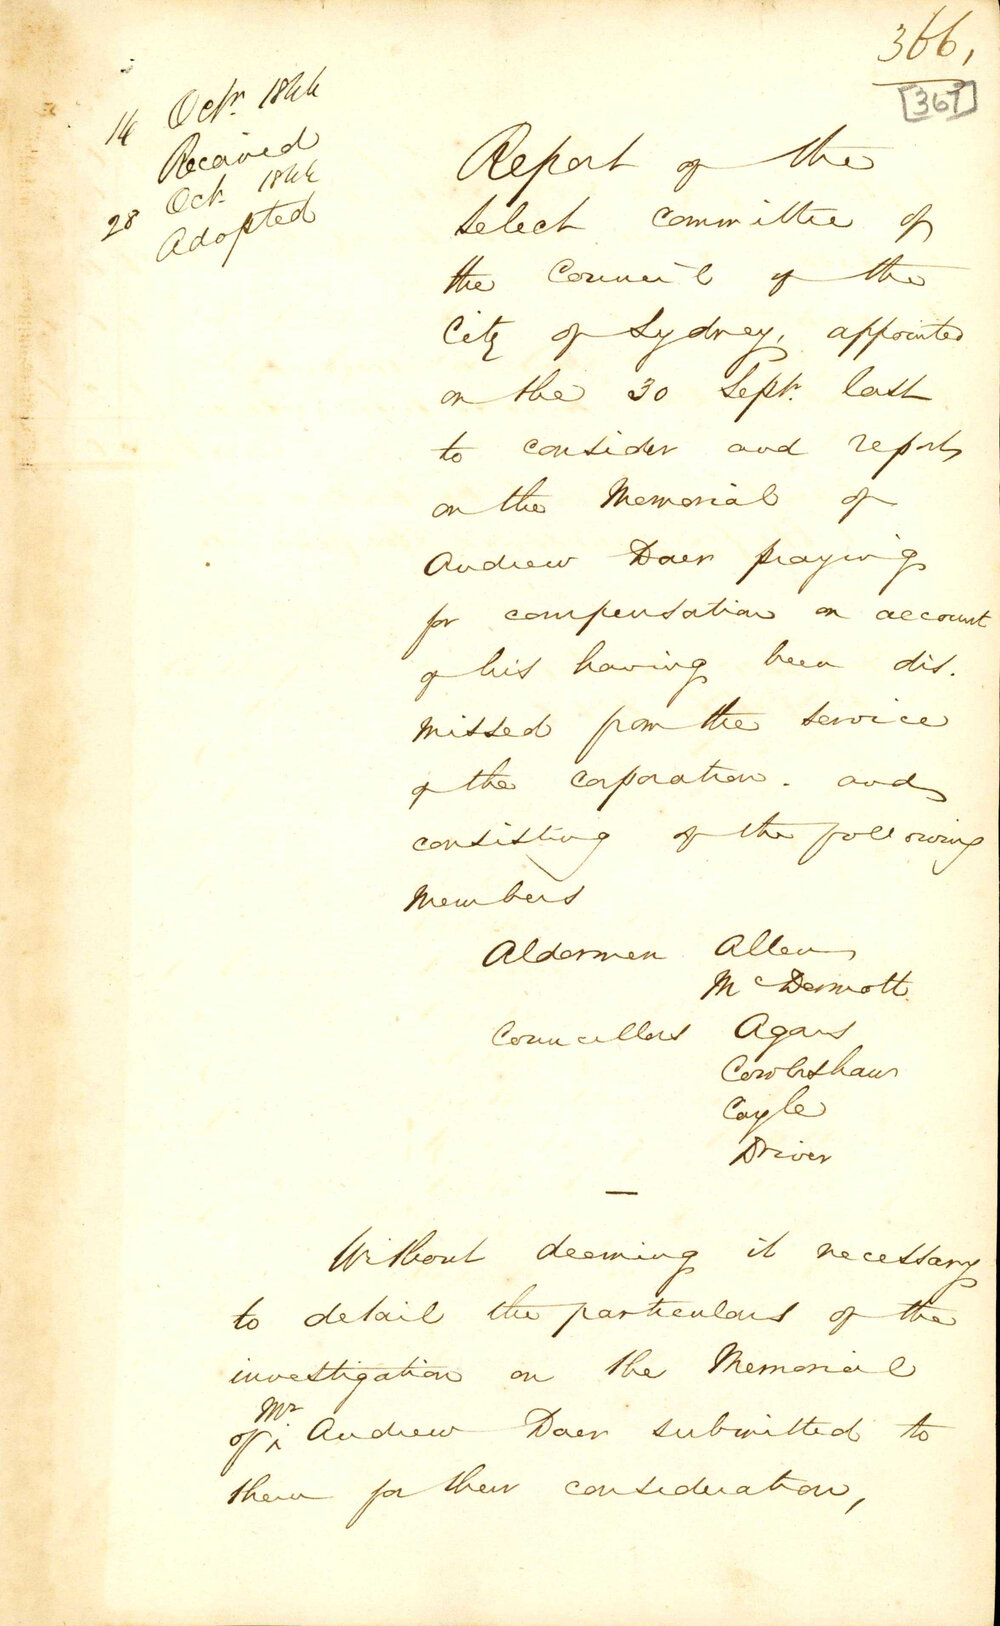 366,
[367]
14 Octr. 1844
Received
28 Oct. 1844
Adopted
Report of the
Select Committee of
the Council of the
City of Sydney, appointed
on the 30 Septr. last
to consider and report
on the Memorial of
Andrew Daer praying
for compensation on account
of his having been dis.
missed from the service
of the corporation. and
consisting of the following
Members
Aldermen Allen
McDermott
Councillors Agars
Cowlishaw
Coyle
Driver
Without deeming it necessary
to detail the particulars of the
investigation on the Memorial
of Mr Andrew Daer submitted to
them for their consideration,